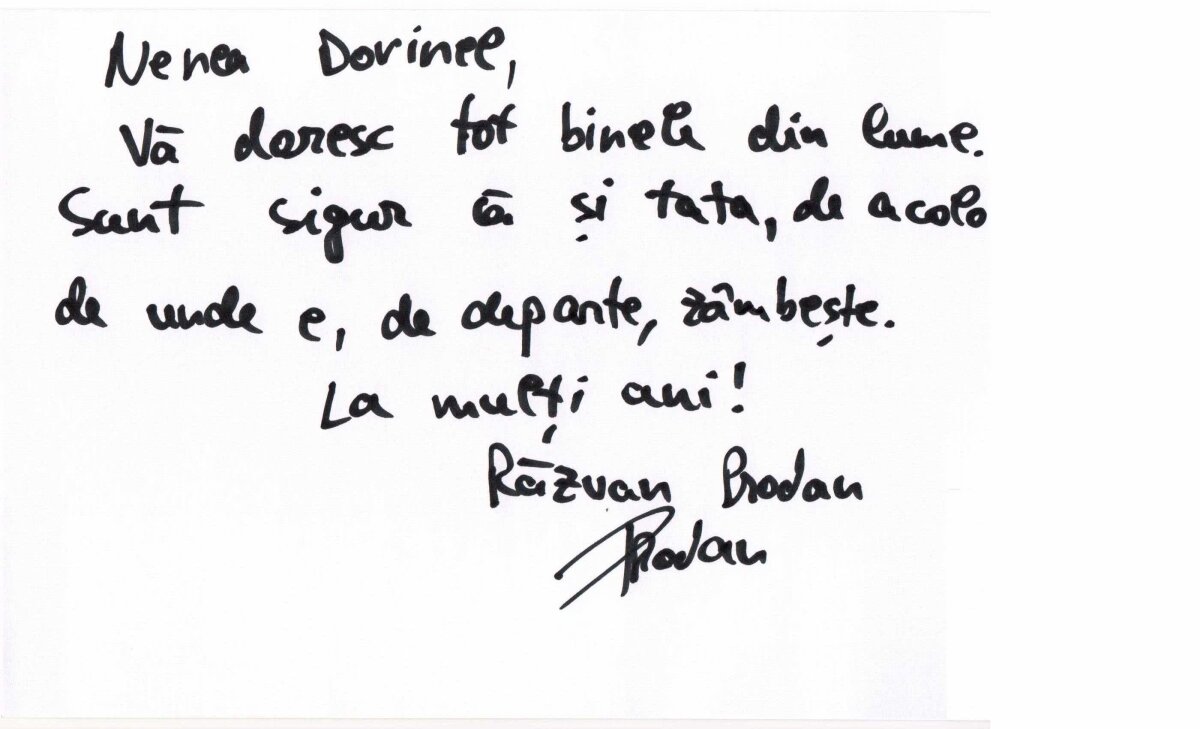 Nenea Dorinel,
Vă doresc tot binele din lume.
Sunt sigur că și tata, de acolo
de unde e, de departe, zâmbește.
La mulți ani!
Răzvan Prodan
Prodan